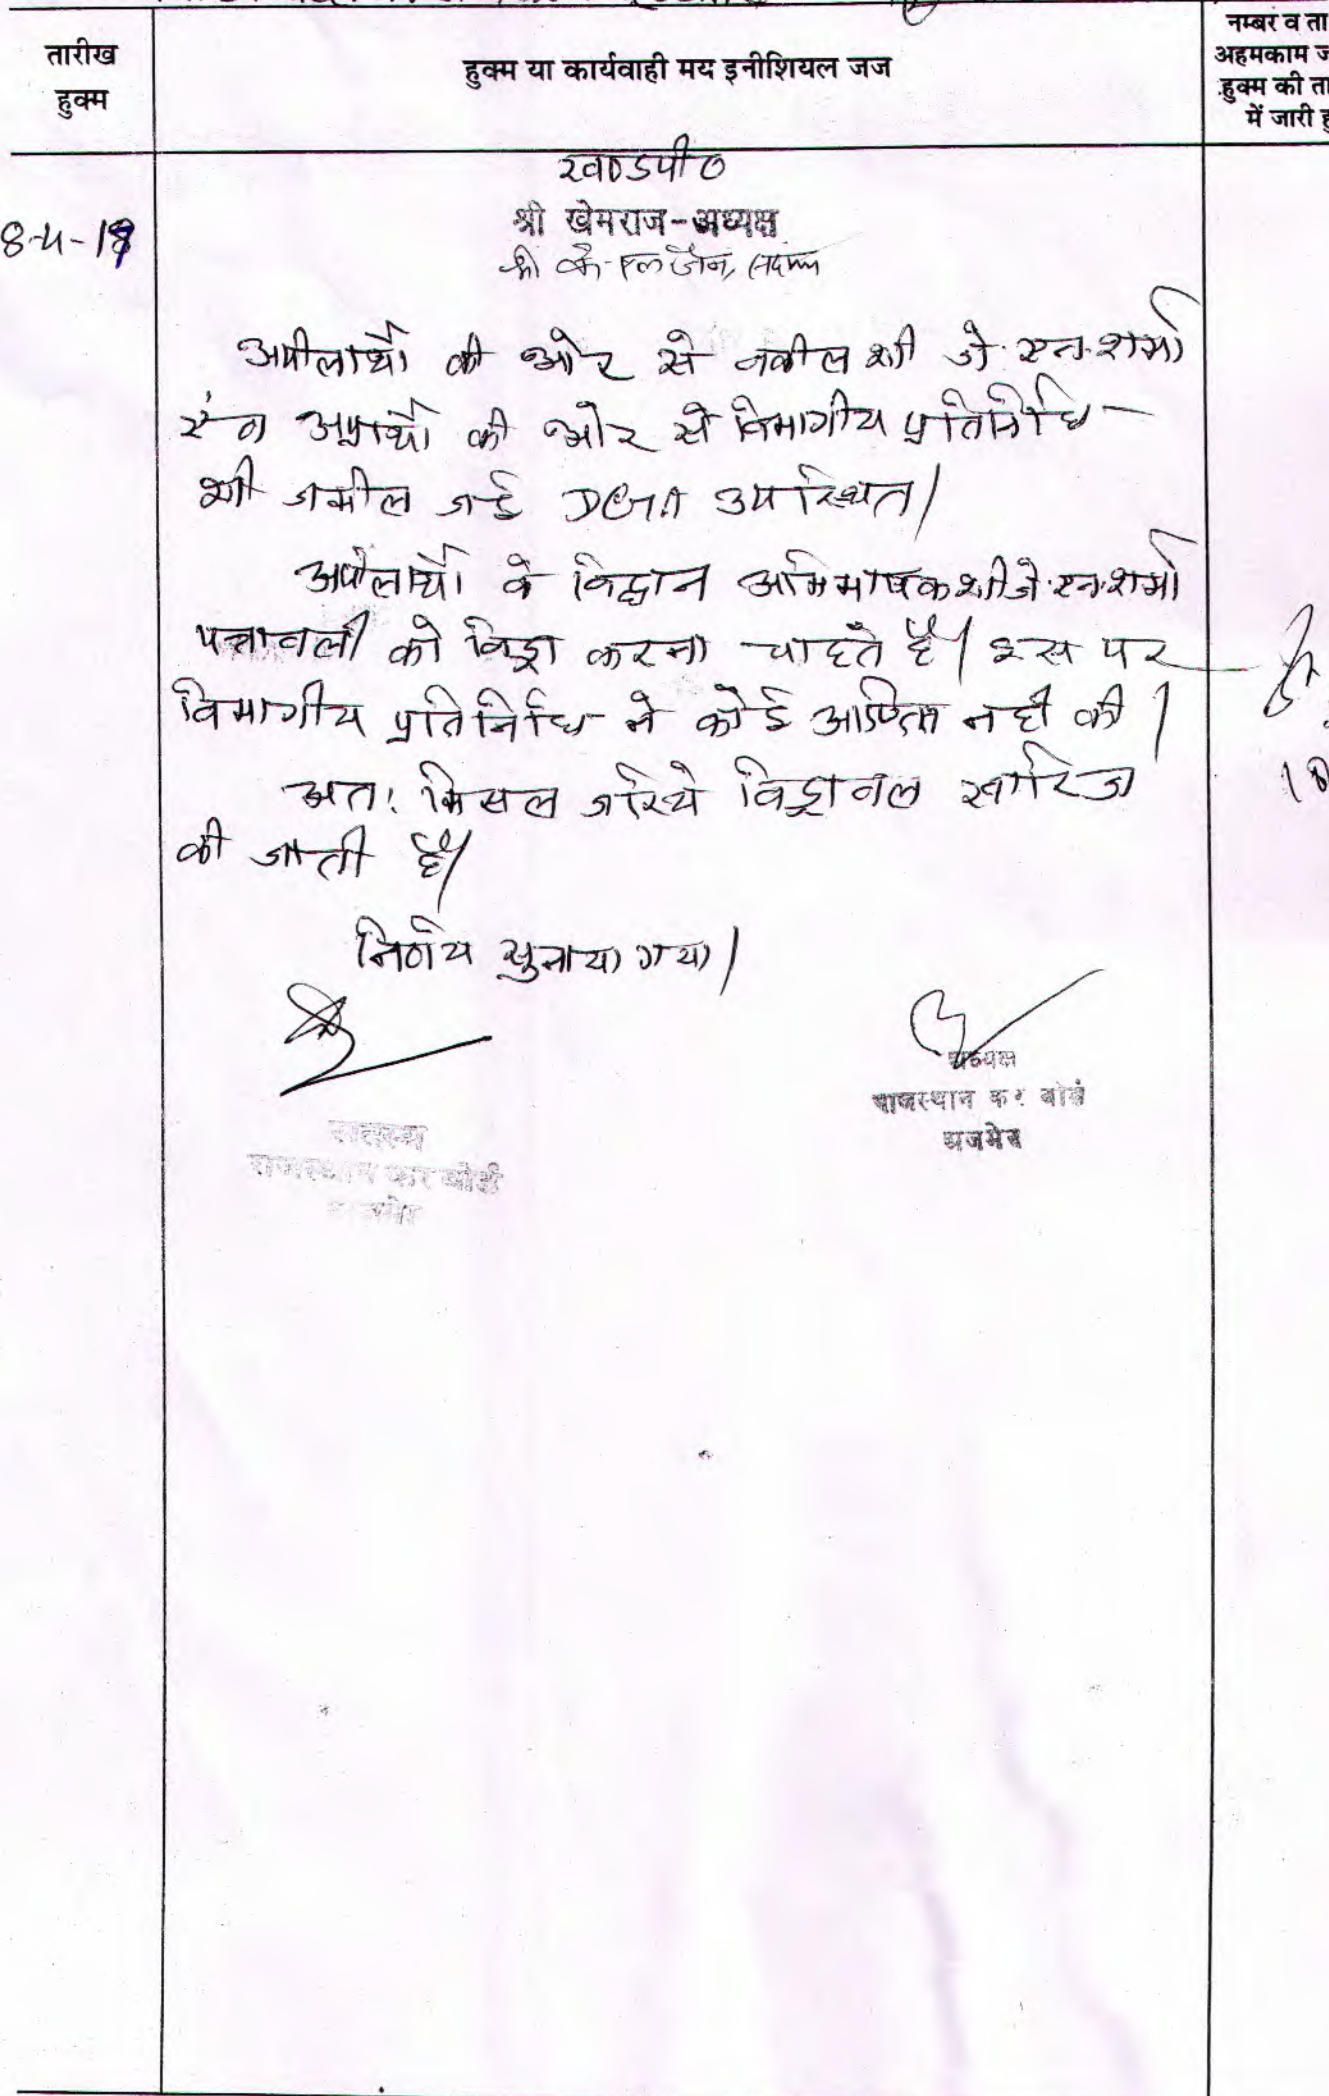 तारीख
हुक्म
हुक्म या कार्यवाही मय इनीशियल जज
नम्बर व ता
अहमकाम ज
हुक्म की ता
में जारी हु
8-4-18
खण्डपीठ
श्री खेमराज-अध्यक्ष
श्री के.एल.जैन, सदस्य
अपीलार्थी की ओर से वकील श्री जे.एन.शर्मा
एंव अप्रार्थी की ओर से विभागीय प्रतिनिधि
श्री जमील जई DGA उपस्थित।
अपीलार्थी के विद्वान अभिभाषक श्री जे.एन.शर्मा
पत्रावली को विड्रा करना चाहते है। इस पर
विभागीय प्रतिनिधि ने कोई आपत्ति नही की।
अत: मिसल जरिये विड्रावल खारिज
की जाती है।
निर्णय सुनाया गया।
अध्यक्ष
राजस्थान कर बोर्ड
अजमेर
सदस्य
राजस्थान कर बोर्ड
अजमेर